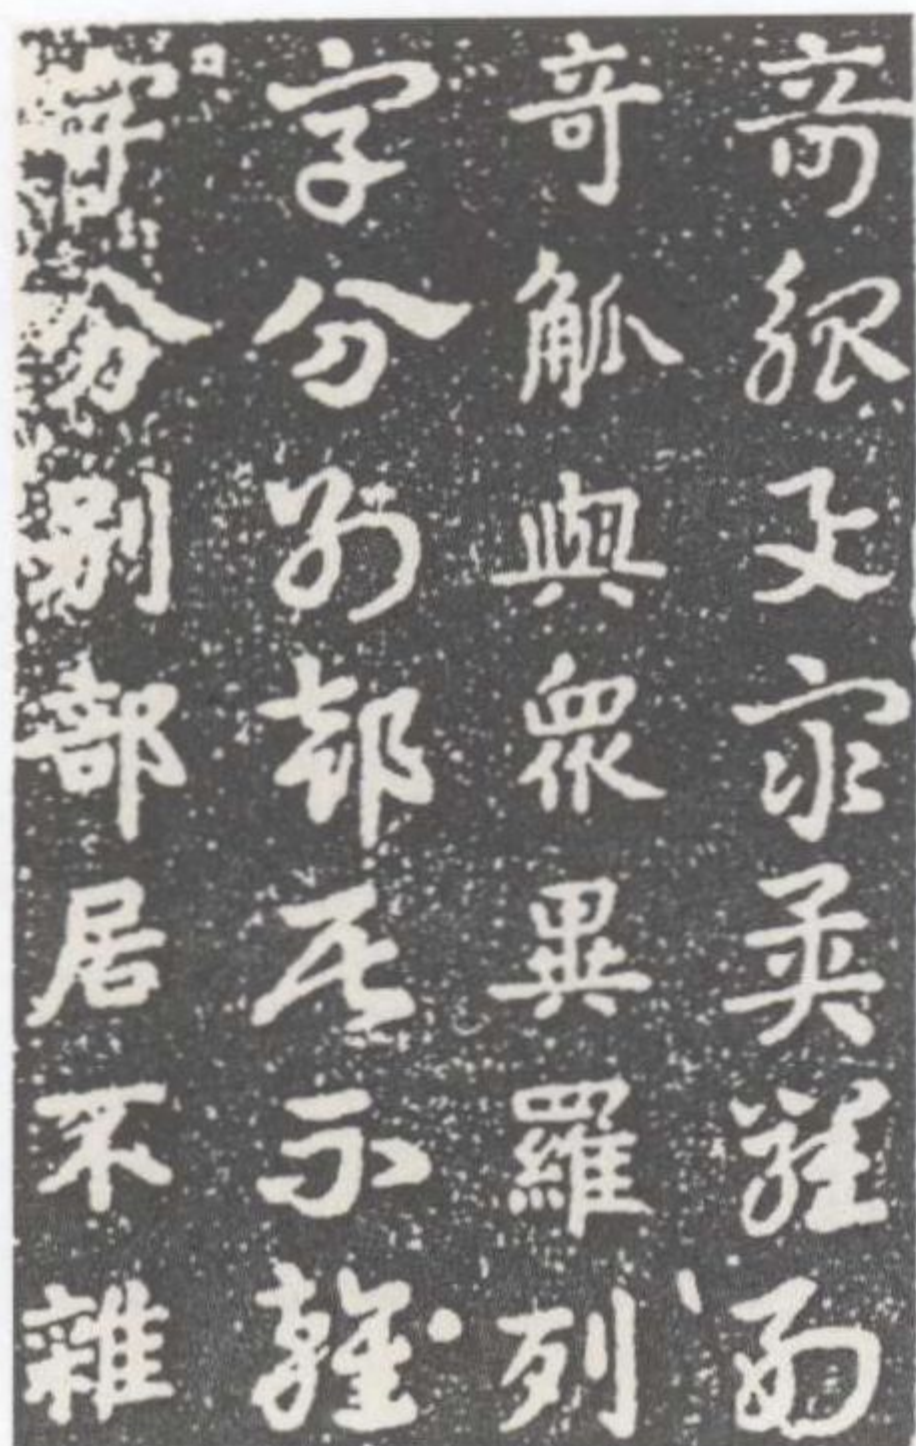 奇觚與眾異羅列
奇觚與衆異羅列
字分別部居不雜
字分別部居不雜